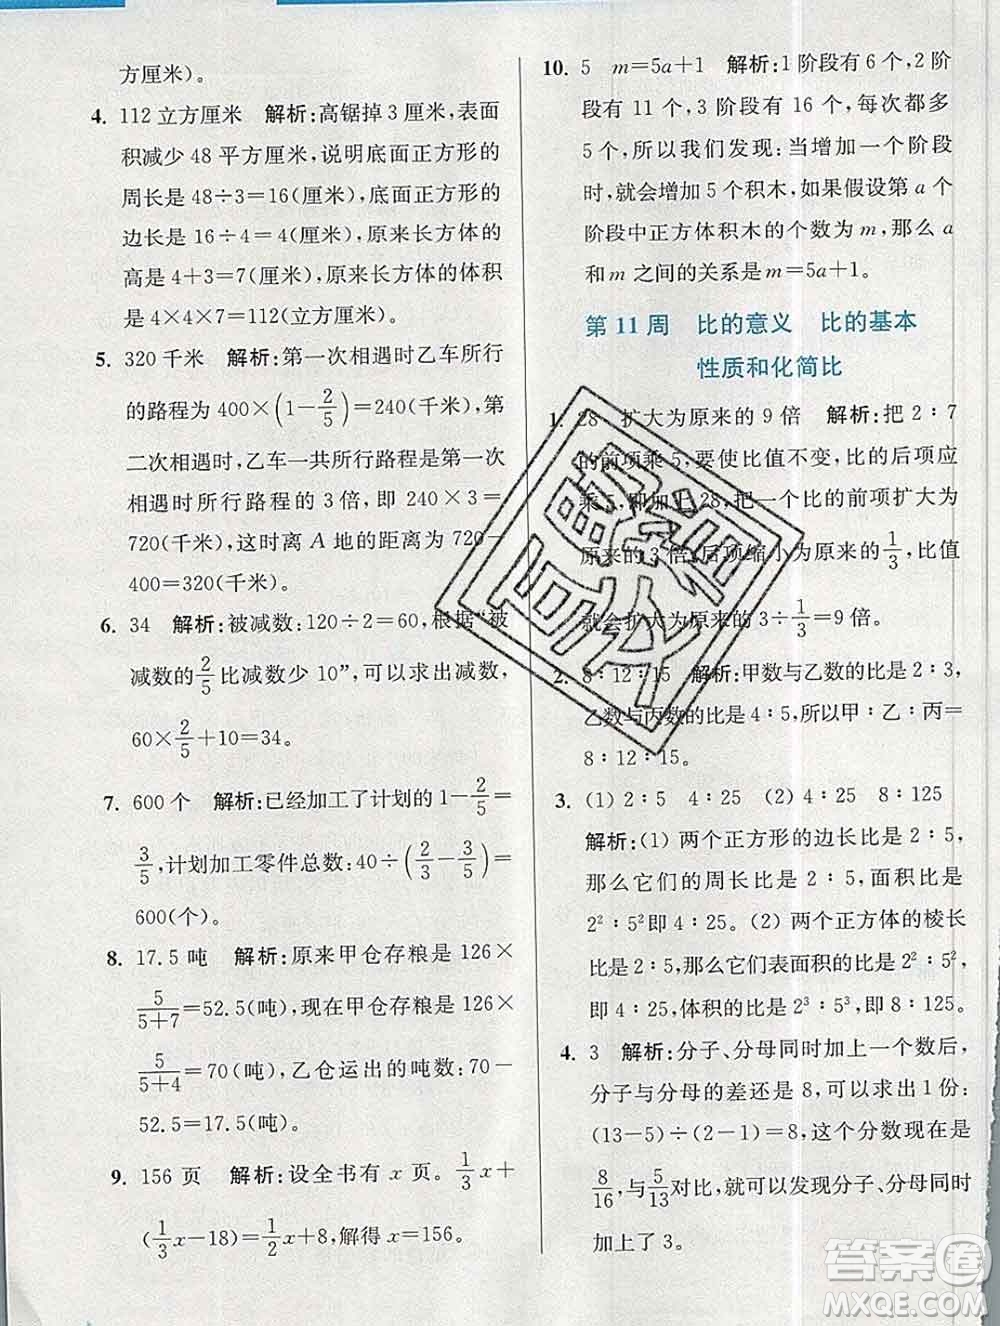 方厘米)。
4. 112立方厘米　解析:高锯掉3厘米,表面
积减少48平方厘米,说明底面正方形的
周长是48÷3=16(厘米),底面正方形的
边长是16÷4=4(厘米),原来长方体的
高是4+3=7(厘米),原来长方体的体积
是4×4×7=112(立方厘米)。
5. 320千米　解析:第一次相遇时乙车所行
的路程为400×(1-2/5)=240(千米),第
二次相遇时,乙车一共所行路程是第一次
相遇时所行路程的3倍,即240×3=
720(千米),这时离A地的距离为720-
400=320(千米)。
6. 34　解析:被减数:120÷2=60,根据“被
减数的2/5比减数少10”,可以求出减数,
60×2/5+10=34。
7. 600个　解析:已经加工了计划的1-2/5=
3/5,计划加工零件总数:40÷(2/3-3/5)=
600(个)。
8. 17.5吨　解析:原来甲仓存粮是126×
5/(5+7)=52.5(吨),现在甲仓存粮是126×
5/(5+4)=70(吨),乙仓运出的吨数:70-
52.5=17.5(吨)。
9. 156页　解析:设全书有x页。1/3x+
(1/3x-18)=1/2x+8,解得x=156。
10. 5　m=5a+1　解析:1阶段有6个,2阶
段有11个,3阶段有16个,每次都多
5个,所以我们发现:当增加一个阶段
时,就会增加5个积木,如果假设第a个
阶段中正方体积木的个数为m,那么a
和m之间的关系是m=5a+1。
第11周　比的意义　比的基本
性质和化简比
1. 28　扩大为原来的9倍　解析:把2∶7
的前项乘5,要使比值不变,比的后项应
乘5,即加上28,把一个比的前项扩大为
原来的3倍,后项缩小为原来的1/3,比值
就会扩大为原来的3÷1/3=9倍。
2. 8∶12∶15　解析:甲数与乙数的比是2∶3,
乙数与丙数的比是4∶5,所以甲∶乙∶丙=
8∶12∶15。
3. (1) 2∶5　4∶25　(2) 4∶25　8∶125
解析:(1) 两个正方形的边长比是2∶5,
那么它们的周长比是2∶5,面积比是
2²∶5²即4∶25。(2) 两个正方体的棱长
比是2∶5,那么它们表面积的比2²∶5²,即
4∶25,体积的比是2³∶5³,即8∶125。
4. 3　解析:分子、分母同时加上一个数后,
分子与分母的差还是8,可以求出1份:
(13-5)÷(2-1)=8,这个分数现在是
8/16,与5/13对比,就可以发现分子、分母同时
加上了3。
答案圈
MXQE.COM